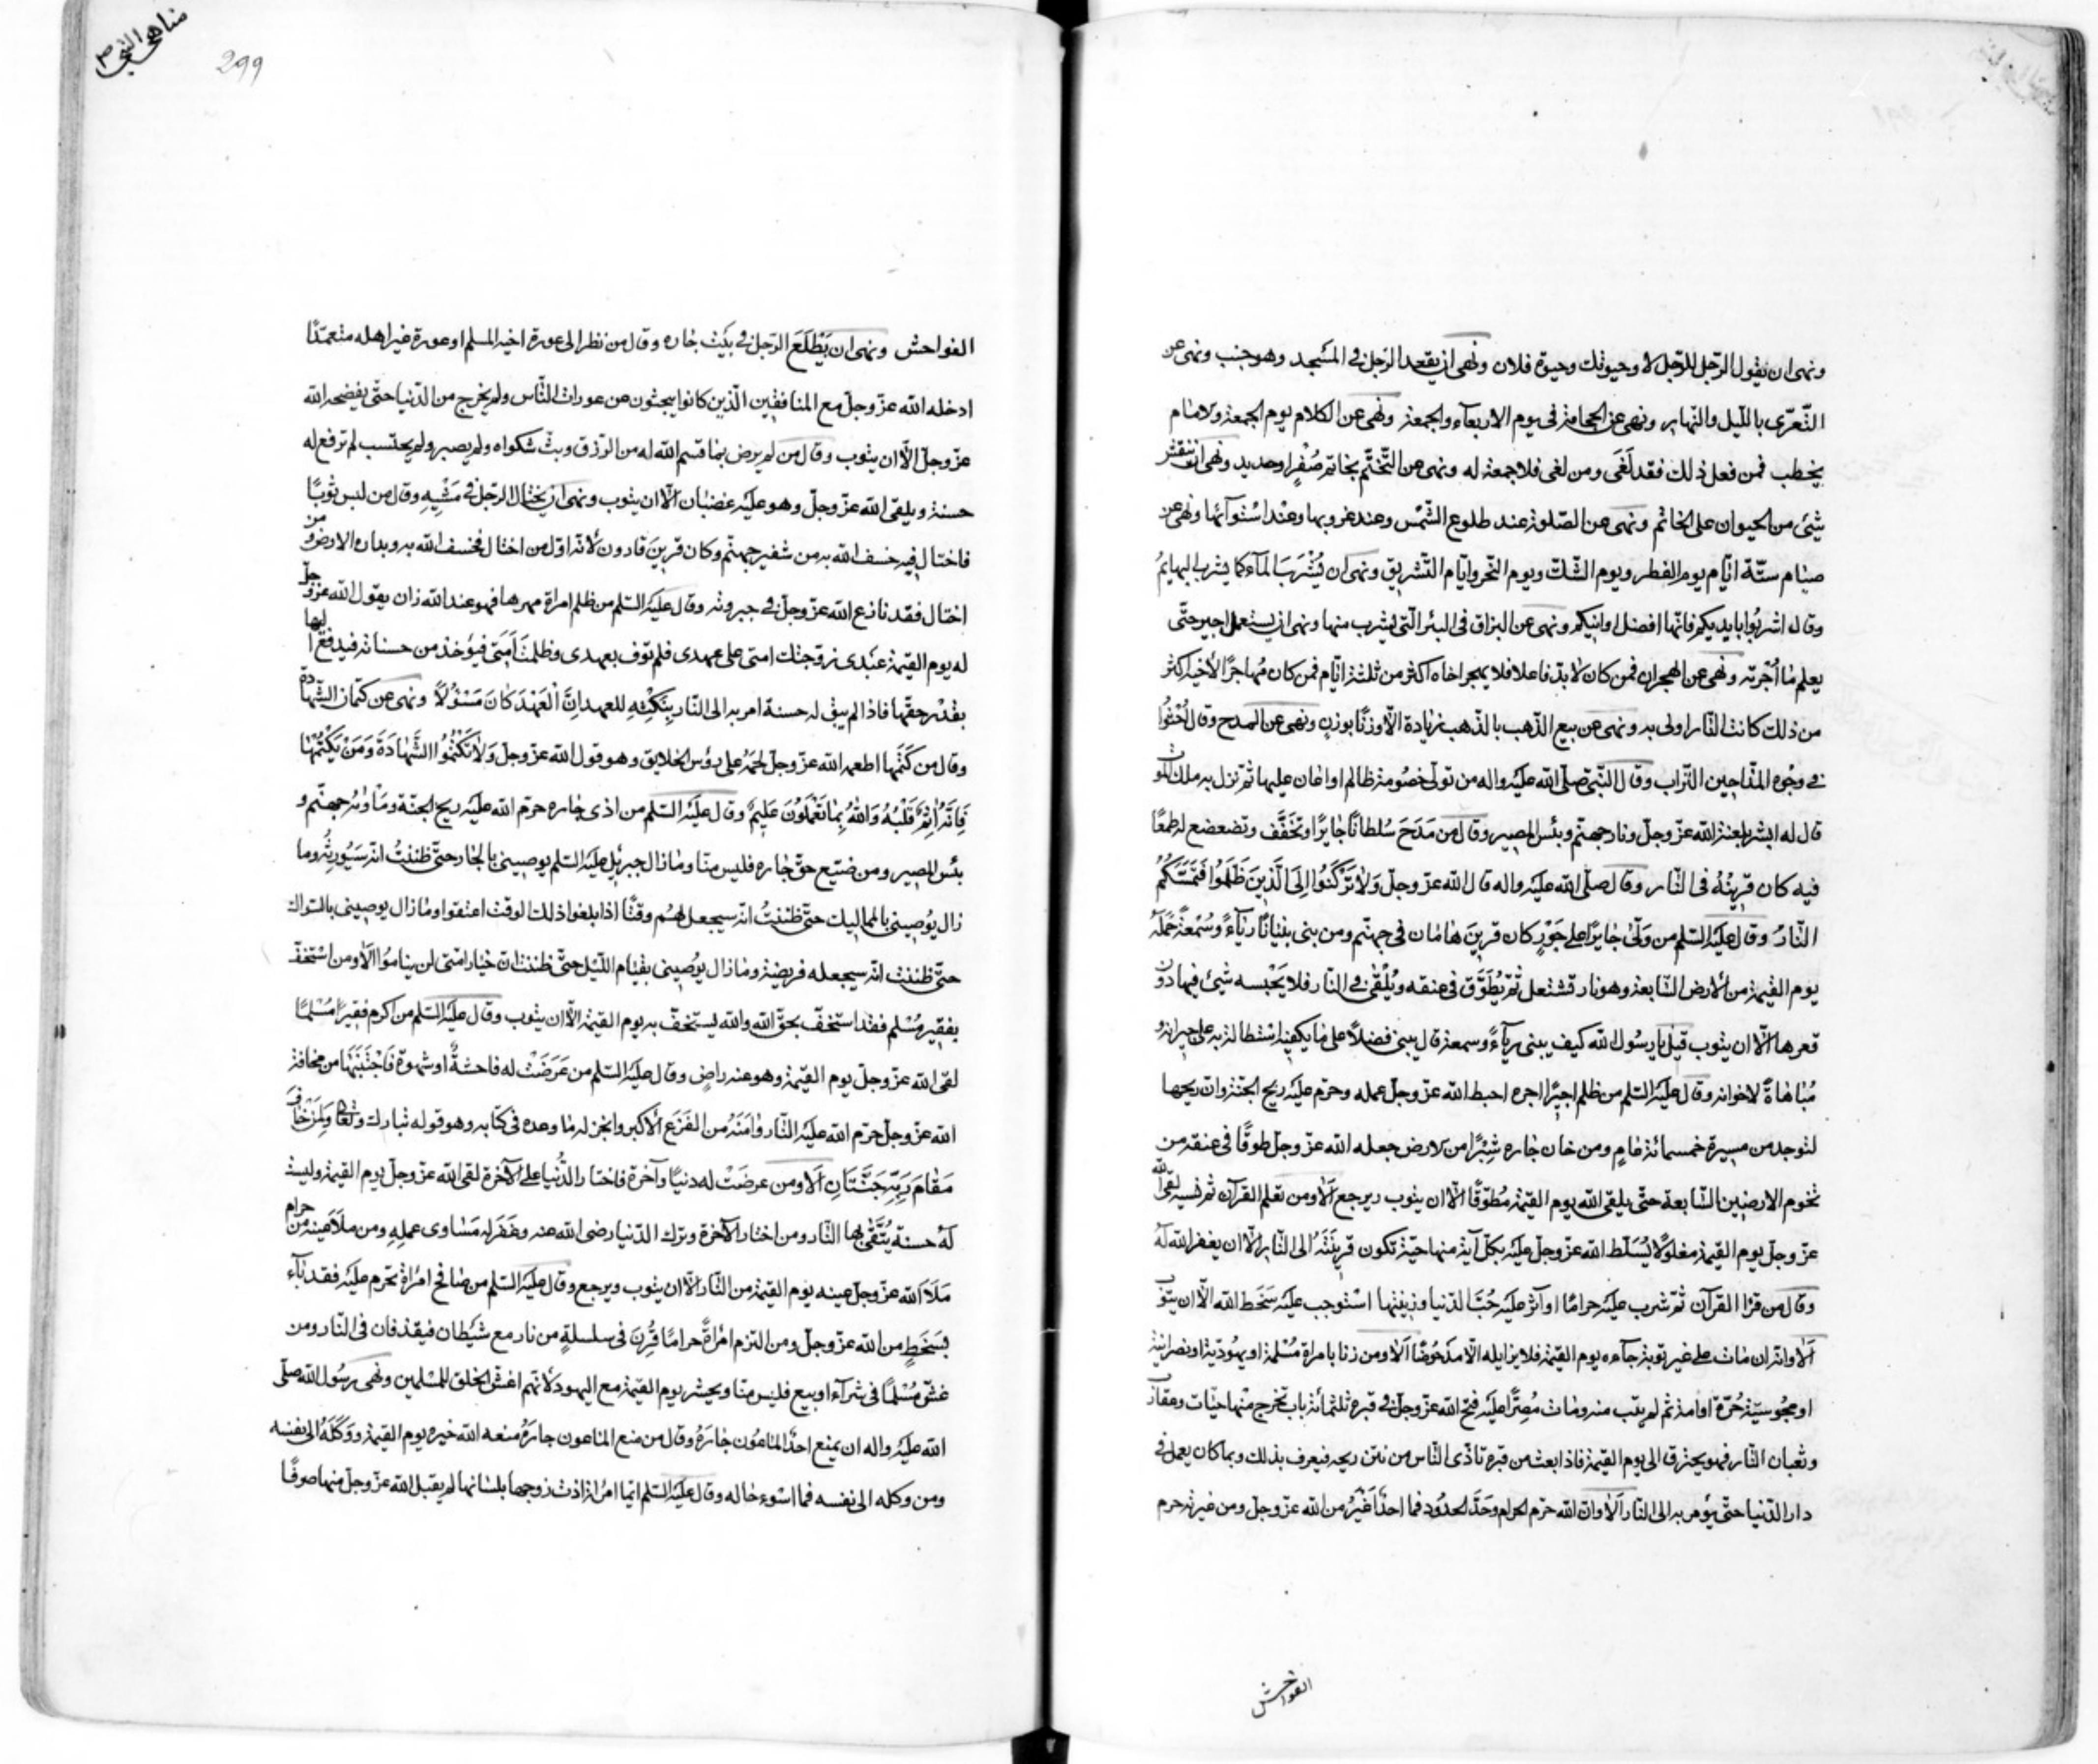 ونهى ان يقول الرّجل للرّجل لا وحيوتك وحيوة فلان ونهى ان يقعد الرّجل فى المسجد وهو جنب ونهى عن
التّعرّى باللّيل والنّهار ونهى عن الحجامة فى يوم الاربعآء والجمعة ونهى عن الكلام يوم الجمعة والامام
يخطب فمن فعل ذلك فقد لَغَى ومن لغى فلا جمعة له ونهى عن التّختّم بخاتم صُفْرٍ او حديد ونهى ان ينقش
شئ من الحيوان على الخاتم ونهى عن الصّلوة عند طلوع الشّمس وعند غروبها وعند استوآئها ونهى عن
صيام ستّة ايّام يوم الفطر ويوم الشّكّ ويوم النّحر وايّام التّشريق ونهى ان يُشْرَبَ المآء كما يشرب البهايمُ
وقال اشربُوا بايديكم فانّها افضل اوانيكم ونهى عن البزاق فى البئر الّتى يشرب منها ونهى ان يستعمل اجير حتّى
يعلم مٰا اُجْرته ونهى عن الهجران فمن كان لابدّ فاعلا فلا يهجر اخاه اكثر من ثلثة ايّام فمن كان مُهاجرًا لاخيه اكثر
من ذلك كانت النّار اولى به ونهى عن بيع الذّهب بالذّهب زيادة الّا وزنًا بوزنٍ ونهى عن المدح وقال اُحْثُوا
فى وجُوه المدّاحين التّراب وقال النّبىّ صلّى الله عليه واله من تولّى خصُومة ظالم او اعان عليها ثم نزل به ملك الموت
قال له ابشر بلعنة الله عزّ وجلّ ونار جهنّم وبئس المصير وقال من مَدَحَ سُلطانًا جايرًا وتخَفَّف وتضعضع له طمعًا
فيه كان قرينُهُ فى النّار وقال صلّى الله عليه واله قال الله عزّ وجلّ وَلاٰ تَرْكَنُوا اِلَى الَّذِينَ ظَلَمُوا فَتَمَسَّكُمُ
النّارُ وقال عليه السّلم من وَلّىٰ جايرًا على جَوْرٍ كان قرين هٰامٰان فى جهنّم ومن بنى بنيانًا ريٰآءً وسُمْعةً حَمَلَهُ
يوم القيٰمة من الارض السّابعة وهو نار تشتعل ثمّ يُطَوَّق فى عنقه ويُلْقىٰ فى النّار فلا يَحْبسه شئ فيها دون
قعرها الّا ان يتوب قيل يا رسُول الله كيف يبنى ريآءً وسمعة قال يبنى فضلًا على ما يكفيه استطالة به على جيرانه و
مُبٰاهٰاةً لاخوانه وقال عليه السّلم من ظلم اجيرًا اجره احبط الله عزّ وجلّ عمله وحرّم عليه ريح الجنّة وان ريحها
لتوجد من مسيرة خمسمائة عٰامٍ ومن خان جٰاره شِبْرًا من الارض جعله الله عزّ وجلّ طوقًا فى عنقه من
تخوم الارضين السّابعة حتّى يلقى الله يوم القيٰمة مُطوّقًا الّا ان يتوب ويرجع اَلاٰ ومن تعلم القرآن ثم نسيه لقى الله
عزّ وجلّ يوم القيٰمة مغلولًا يُسَلّط الله عزّ وجلّ عليه بكلّ آية منها حيّة تكون قرينَتَهُ الى النّار الّا ان يغفر الله لهُ
وقال من قرٰا القرآن ثمّ شرب عليه حرامًا او آثر عليه حُبّ الدّنيا وزينتها استوجب عليه سَخَط الله الّا ان يتوب
اَلاٰ وانّه ان مٰات على غير توبة جآءه يوم القيٰمة فلا يزايله الّا مدْحوُضًا اَلاٰ ومن زنا بامراة مُسْلمة او يهُوديّة او نصرانيّة
او مجُوسيّة حُرّة او امة ثمّ لم يتب منه ومٰات مُصِرًّا عليه فتح الله عزّ وجلّ فى قبره ثلثمائة باب تخرج منها حيّات وعقارب
وثعبان النّار فهو يحترق الى يوم القيٰمة فاذا بعث من قبره تاذّى النّاس من نتن ريحه فيعرف بذلك وبما كان يعمل فى
دار الدّنيا حتّى يؤمر به الى النّار اَلاٰ وانّ الله حرّم الحرام وحَدَّ الحدُود فما احدٌ اَغْيَرُ من الله عزّ وجلّ ومن غيرته حرم
الفواحش
مناهى النّبى ص
299
الفواحش ونهى ان يَطَّلِعَ الرّجل فى بَيْت جٰاره وقال من نظر الى عورة اخيه المسلم او عورة غير اهله متعمّدًا
ادخله الله عزّ وجلّ مع المنافقين الّذين كانوا يبحثون عن عورات النّاس ولم يخرج من الدّنيا حتّى يفضحه الله
عزّ وجلّ الّا ان يتوب وقال من لم يرض بمٰا قسم الله له من الرّزق وبثّ شكواه ولم يصبر ولم يحتسب لم ترفع له
حسنة ويلقى الله عزّ وجلّ وهو عليه غضبٰان الّا ان يتوب ونهى ان يختال الرّجل فى مَشْيِهِ وقال من لبس ثوبًا
فاختال فيه خسف الله به من شفير جهنّم وكان قرينَ قارون لانّه اوّل من اختال فخسف الله به وبداره الارض ومن
اختال فقد نازع الله عزّ وجلّ فى جبروته وقال عليه السّلم من ظلم امراة مهرها فهو عند الله زان يقول الله عزّ وجلّ
له يوم القيٰمة عَبْدى زوّجتك امتى على عهدى فلم توف بعهدى وظلمت اَمَتى فيؤخذ من حسناته فيدفع اليها
بقدْر حقّها فاذا لم يبق له حسنة امر به الى النّار بِنَكْثِهِ للعهد اِنَّ الْعَهْدَ كٰانَ مَسْئُولًا ونهى عن كتمان الشّهادة
وقال من كَتَمها اطعمه الله عزّ وجلّ لحمَهُ على رؤس الخلايق وهو قول الله عزّ وجلّ وَلاٰ تَكْتُمُوا الشَّهٰادَةَ وَمَنْ يَكْتُمْهٰا
فَاِنَّهُ اٰثِمٌ قَلْبُهُ وَاللهُ بِمٰا تَعْمَلُونَ عَلِيمٌ وقال عليه السّلم من اذى جٰاره حرّم الله عليه ريح الجنّة ومٰاوٰيه جهنّم و
بئس المصير ومن ضيّع حقّ جٰاره فليس منّا ومٰا زال جبرئل عليه السّلم يوصينى بالجٰار حتّى ظننتُ انّه سَيُورِثُه وما
زال يوُصينى بالمماليك حتّى ظننتُ انّه سيجعل لهُم وقتًا اذا بلغوا ذلك الوقت اعتقوا ومٰا زال يوصينى بالسّواك
حتّى ظننت انّه سيجعله فريضة ومٰا زال يوُصينى بقيٰام اللّيل حتّى ظننت انّ خيٰار امّتى لن ينٰامُوا اَلاٰ ومن استخفّ
بفقير مُسْلم فقد استخفّ بحقّ الله والله يستخفّ به يوم القيٰمة الّا ان يتوب وقال عليه السّلم من اكرم فقيرًا مُسْلمًا
لقى الله عزّ وجلّ يوم القيٰمة وهو عنه راضٍ وقال عليه السّلم من عَرَضَتْ له فاحشةٌ او شهوة فَاجْتَنَبَهٰا من مخافة
الله عزّ وجلّ حرّم الله عليه النّار وٰامَنَهُ من الفَزَع الاكبر وانجز له مٰا وعده فى كتابه وهو قوله تبارك وتعٰالى وَلِمَنْ خٰافَ
مَقٰامَ رَبِّهِ جَنَّتٰانِ اَلاٰ ومن عرضَتْ له دنيٰا وآخرة فاختٰار الدُّنيا على الآخرة لقى الله عزّ وجلّ يوم القيٰمة وليست
لَهُ حسنةٌ يُتَّقىٰ بها النّار ومن اختار الآخرة وترك الدّنيا رضى الله عنه وغَفَر له مَسٰاوى عملِهِ ومن ملَاَ عينه من حرام
مَلَاَ الله عزّ وجلّ عينه يوم القيٰمة من النّار الّا ان يتوب ويرجع وقال عليه السّلم من صٰافح امْراة تحرم عليه فقد بٰآء
بسَخَطٍ من الله عزّ وجلّ ومن التزم امْراةً حرامًا قُرِنَ فى سلسلةٍ من نار مع شيْطان فيقذفان فى النّار ومن
غشّ مُسْلمًا فى شرآء او بيع فليس منّا ويحشر يوم القيٰمة مع اليهود لانّهم اغشّ الخلق للمُسْلمين ونهى رسُول الله صلّى
الله عليه واله ان يمنع احدٌ المٰاعُون جٰارَهُ وقال من منع المٰاعون جارَهُ منعه الله خيره يوم القيٰمة ووَكَلَهُ الى نفسه
ومن وكله الى نفسه فمٰا اسْوء حٰاله وقال عليه السّلم ايّما امْراة اذت زوجها بلسٰانها لم يقبل الله عزّ وجلّ منها صرفًا